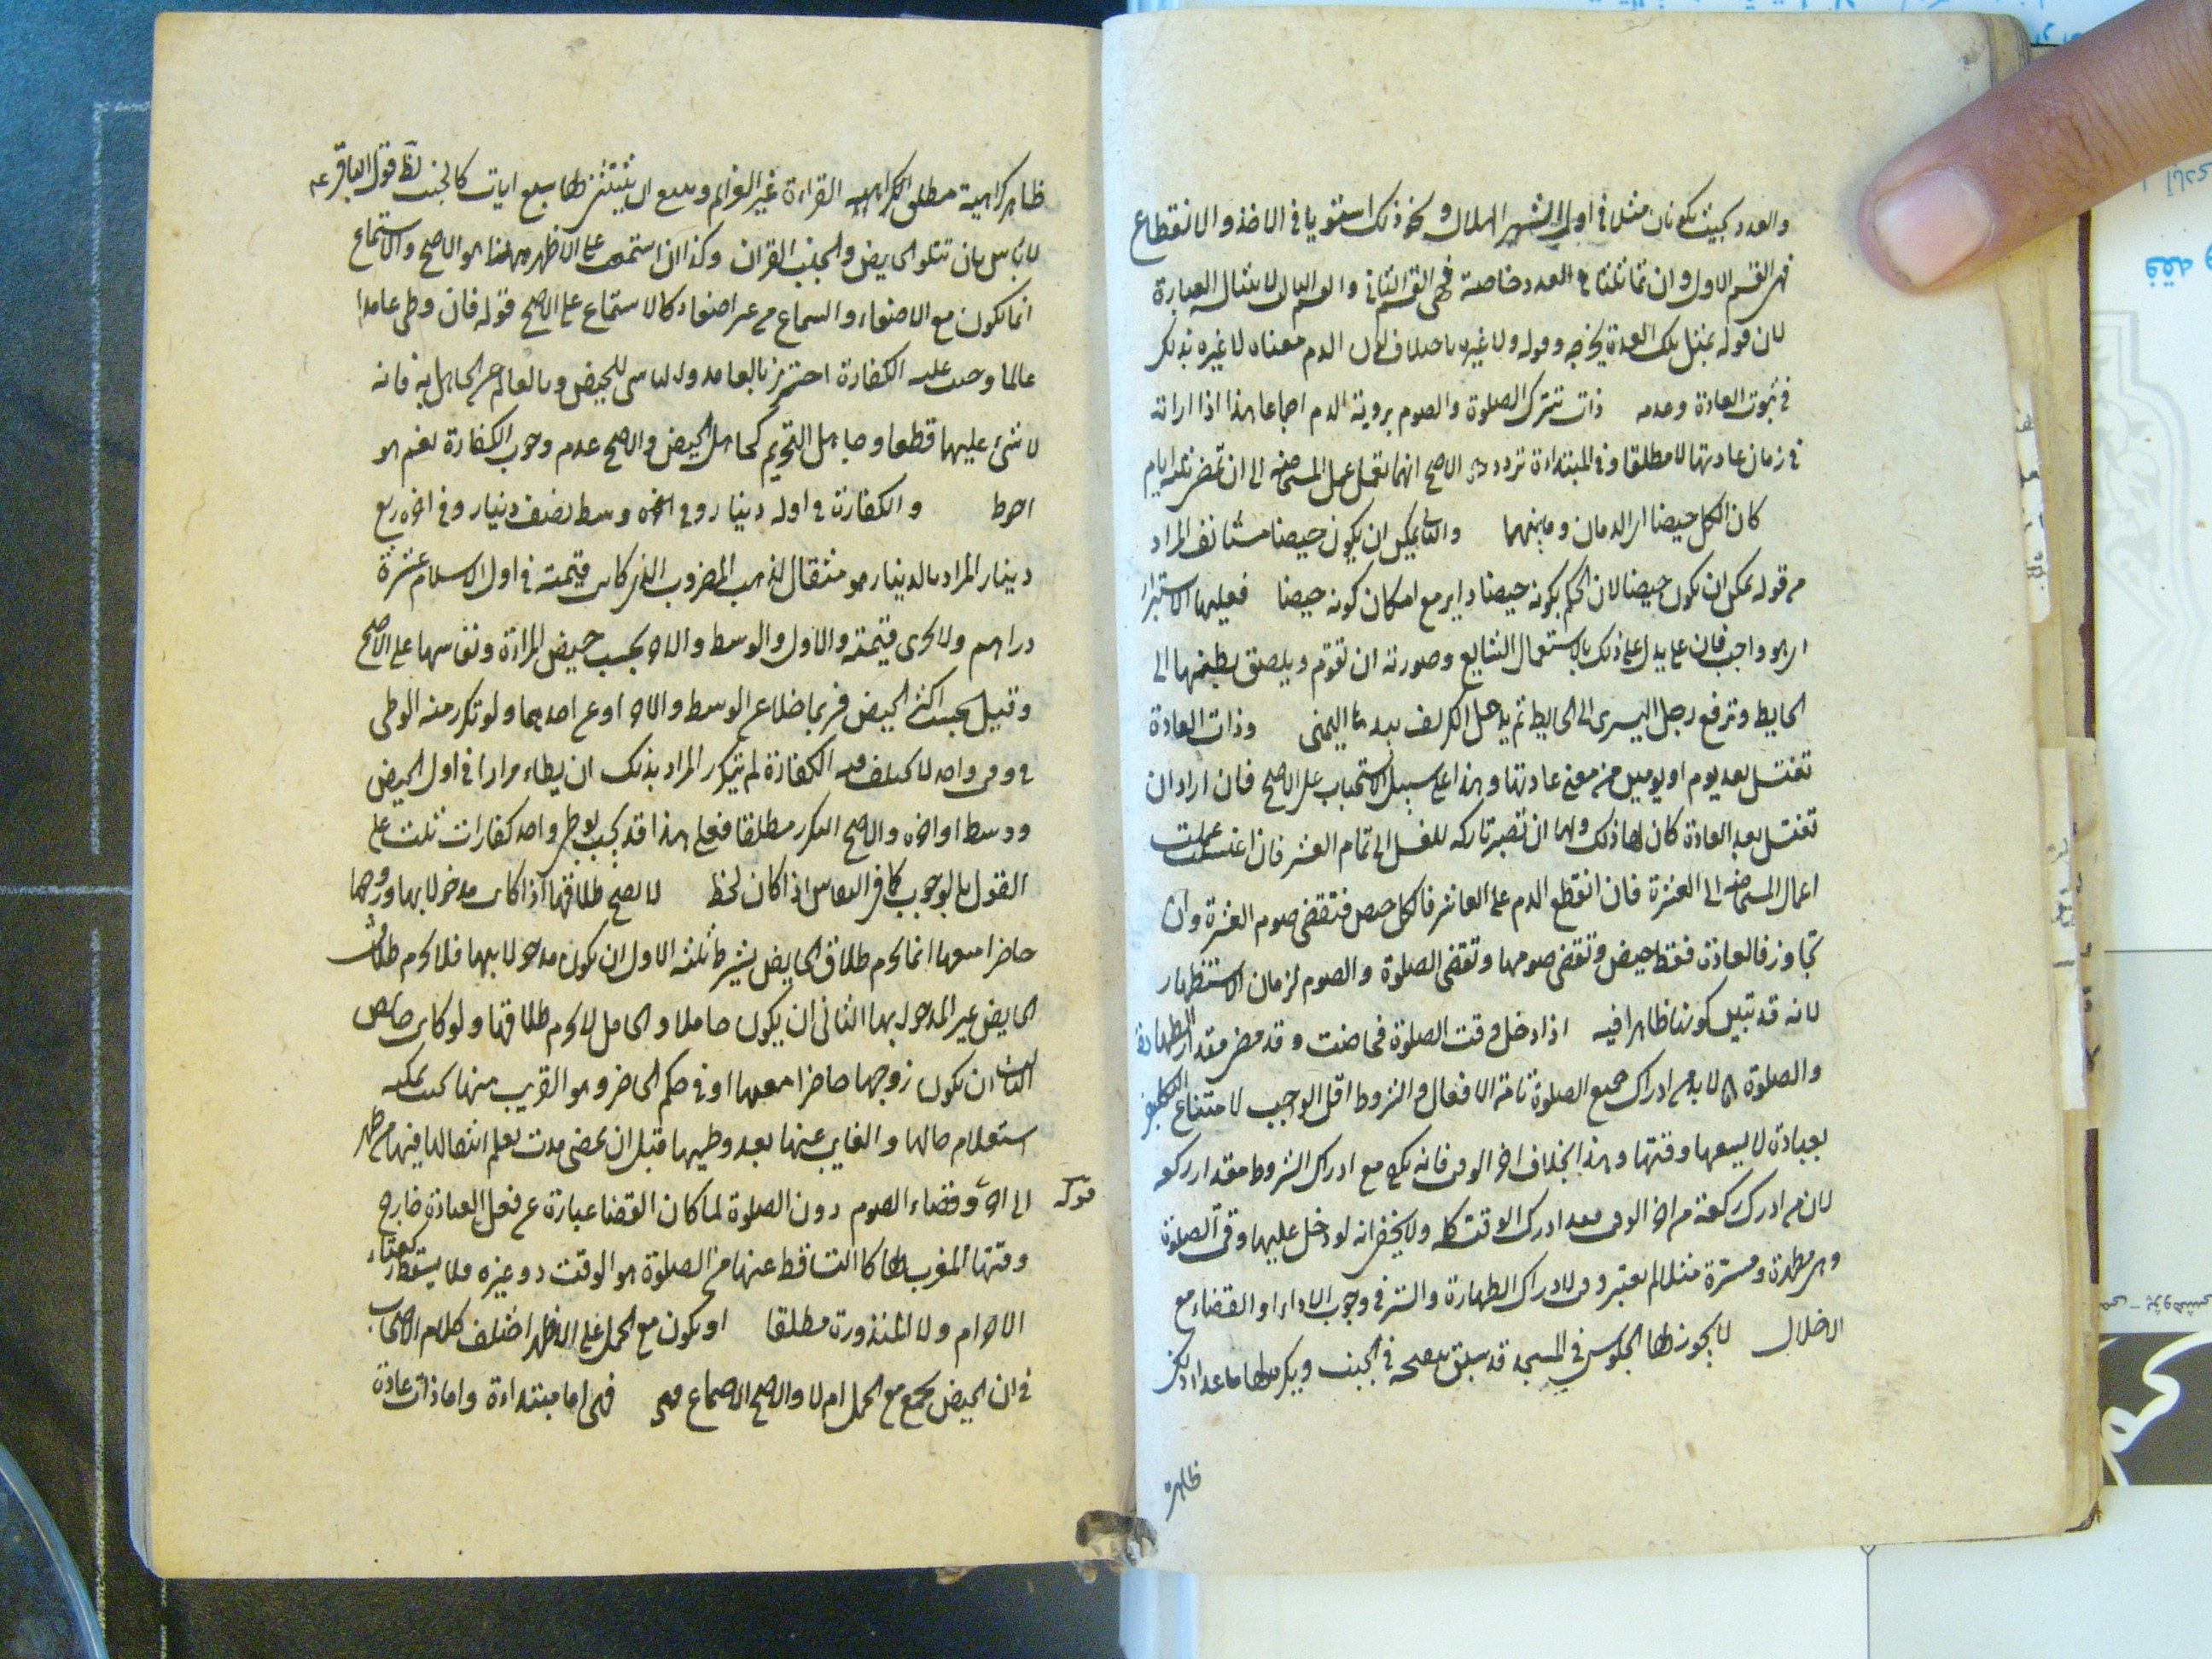 والعدد بحيث يكونان مثلا في اول الشهر الهلالى ونحو ذلك استويا في الاخذ والانقطاع
فهى القسم الاول وان تماثلتا في العدد خاصة فهى القسم الثانى والقسم الثالث لا تناله العبارة
لان قوله بمثل تلك العدة يخرجه وقوله ولا غيره باختلاف لون الدم معناه لا غيره بذلك
في ثبوت العادة وعدمه ذات تترك الصلوة والصوم بروية الدم اجماعا هذا اذا اراته
في زمان عادتها لا مطلقا وفي المبتداءة تردد الاصح انها تعمل عمل المستحاضه الى ان تمضى ثلثه ايام
كان الكل حيضا اى الدمان وما بينهما والثانى يمكن ان يكون حيضا مستانفا المراد
من قوله يمكن ان يكون حيضا لان الحكم بكونه حيضا داير مع امكان كونه حيضا فعليها الاستبراء
اى هو واجب فان على يدل على ذلك بالاستعمال الشايع وصورته ان تقوم ويلصق بطنها الى
الحايط وترفع رجل اليسرى الى الحايط ثم يدخل الكرسف بيدها اليمنى وذات العادة
تغتسل بعد يوم او يومين من معنى عادتها وهذا على سبيل الاستحباب على الاصح فان اراد ان
تغتسل بعد العادة كان لها ذلك ولها ان تصبر تاركه للغسل الى تمام العشر فان اغتسلت عملت
اعمال المستحاضه الى العشرة فان انقطع الدم على العاشر فالكل حيض فتقضى صوم العشرة وان
تجاوز فالعادة فقط حيض وتقضى صومها وتقضى الصلوة والصوم لزمان الاستظهار
لانه قد تبين كونها ظاهرا فيه اذا دخل وقت الصلوة فحاضت وقد مضى مقدار الطهارة
والصلوة لا بد من ادراك جميع الصلوة تامة الافعال والشروط اقل الواجب لامتناع التكليف
بعبادة لا يسعها وقتها وهذا بخلاف اخر الوقت فانه يكفي مع ادراك الشروط مقدار ركعه
لان من ادرك ركعة من اخر الوقت فقد ادرك الوقت كله ولا يخفى انه لو دخل عليها وقت الصلوة
وهى مطهرة ومسترة مثلا لم يعتبر وقت لادراك الطهارة والستر في وجوب الاداء او القضاء مع
الاخلال لا يجوز لها الجلوس في المسجد قد سبق في الجنب ويكره لها ما عدا ذلك
ظاهره
ظاهر كراهية مطلق القراءة غير العزائم ومع ان يستثنى لها سبع ايات كالجنب لظ قول الباقر عه
لا باس بان تتلو الحايض والجنب القران وكذا ان استمعت على الاظهر هذا هو الاصح والاستماع
انما يكون مع الاصغاء والسماع من غير اصغاء كالاستماع على الاصح قوله فان وطى عامدا
عالما وجبت عليه الكفارة احترز بالعامد والناسى للحيض وبالعالم عن الجاهل به فانه
لا شئ عليهما قطعا وجاهل التحريم كجاهل الحيض والاصح عدم وجوب الكفارة نعم هو
احوط والكفارة في اوله دينار وفي وسط نصف دينار وفي اخره ربع
دينار المراد بالدينار هو مثقال الذهب المضروب الذى كانت قيمته في اول الاسلام عشرة
دراهم ولا يجزى قيمته والاول والوسط والاخر بحسب حيض المراءة ونفاسها على الاصح
وقيل بحسب اكثر الحيض فربما خلا عن الوسط والاخر او عن احدهما ولو تكرر منه الوطى
في وقت واحد لا تختلف فيه الكفارة لم تتكرر المراد بذلك ان يطاء مرارا في اول الحيض
ووسط او اخره والاصح التكرر مطلقا فعلى هذا قد يجب بوطى واحد كفارات ثلث على
القول بالوجوب كما في النفاس اذا كان لحظ لا يصح طلاقها اذا كانت مدخولا بها وزوجها
حاضرا معها انما يحرم طلاق الحايض بشروط ثلثه الاول ان تكون مدخولا بها فلا يحرم طلاق
الحايض غير المدخول بها الثانى ان يكون حاملا والحامل لا يحرم طلاقها ولو كانت حائض
الثالث ان يكون زوجها حاضرا معها او في حكم الحاضر وهو القريب منها بحيث يمكنه
استعلام حالها والغايب عنها بعد وطيها قبل ان يمضى مدت يعلم انتقالها فيها من طهر
الى اخر وقضاء الصوم دون الصلوة لما كان القضا عبارة عن فعل العبادة خارج
قوله
وقتها المضروب لها كان الساقط عنها من الصلوة هو الوقت دو غيره فلا يسقط ركعتاء
الاحرام ولا المنذورة مطلقا او يكون مع الحمل على الاظهر اختلف كلام الاصحاب
في ان الحيض يجمع مع الحمل ام لا والاصح الاجتماع فهى اما مبتداءة واما ذات عادة